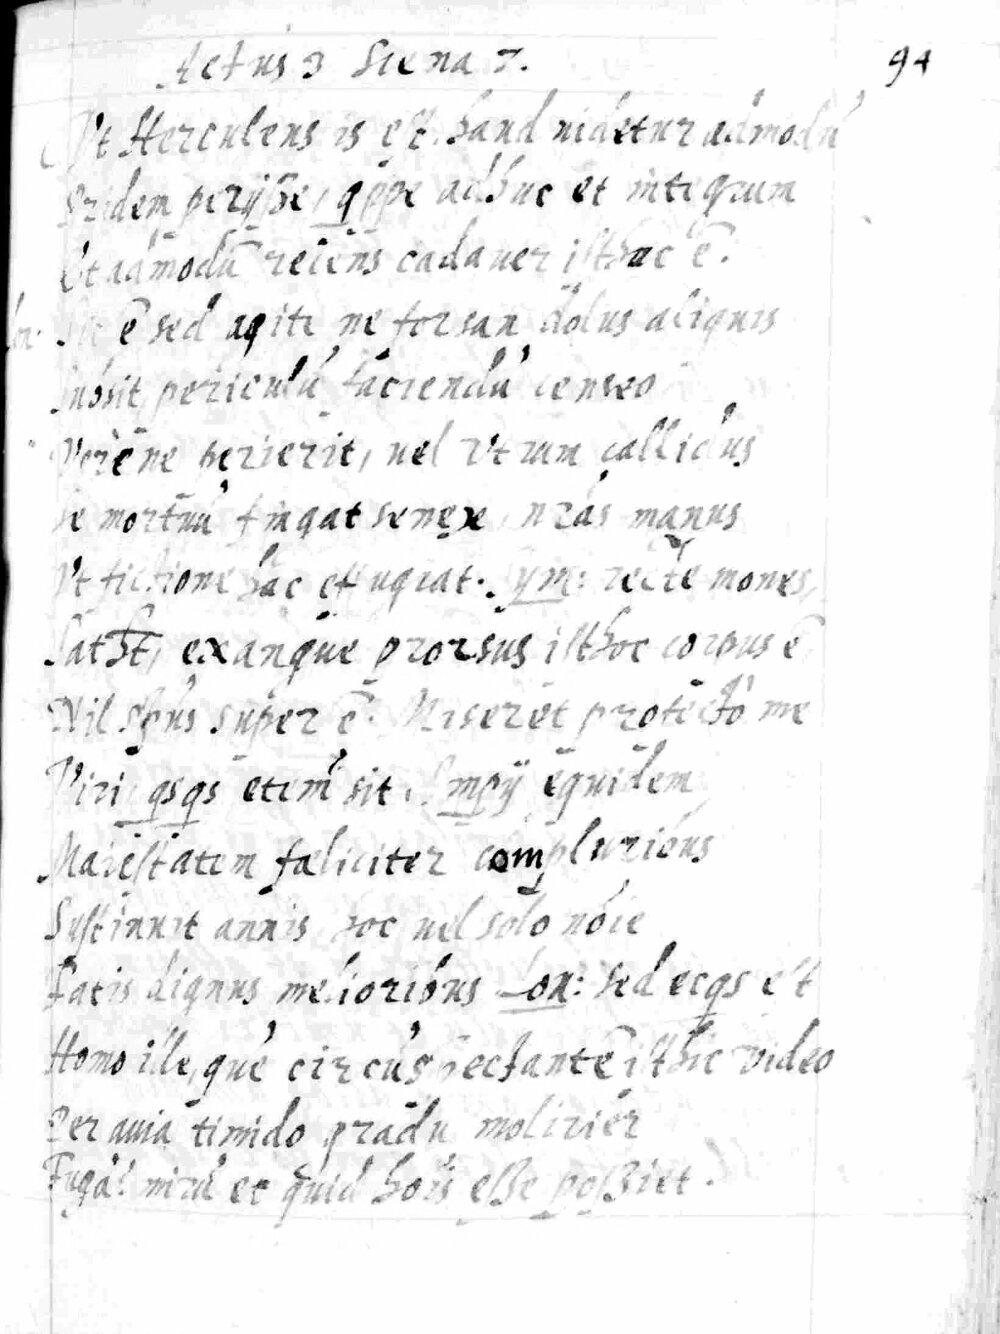 Actus 3 Scena 7. 94
Vt Herculeus is est. haud uidetur admodū
Pridem perijsse, qppe adhuc et integrum
Et admodū recens cadauer isthuc ē.
ē sed agite ne forsan dolus aliquis
Subsit, periculū faciendū censeo
Verène perierit, uel vtrum callidus
se mortuū fingat senex nras manus
Vt fictione hac effugiat. Sym: recte mones,
Sat ht, exangue prorsus isthoc corpus ē
Nil spūs super ē. Miseret profectò me
Viri qsqs etem sit. Impij equidem
Maiestatem fæliciter compluribus
Sustinuit annis hoc uel solo noīe
Fatis dignus melioribus Lon: sed ecqs est
Homo ille, quē circūspectantē isthic video
Per auia timido gradu molirier
Fugā? mirū et quid hoīs esse possiet.